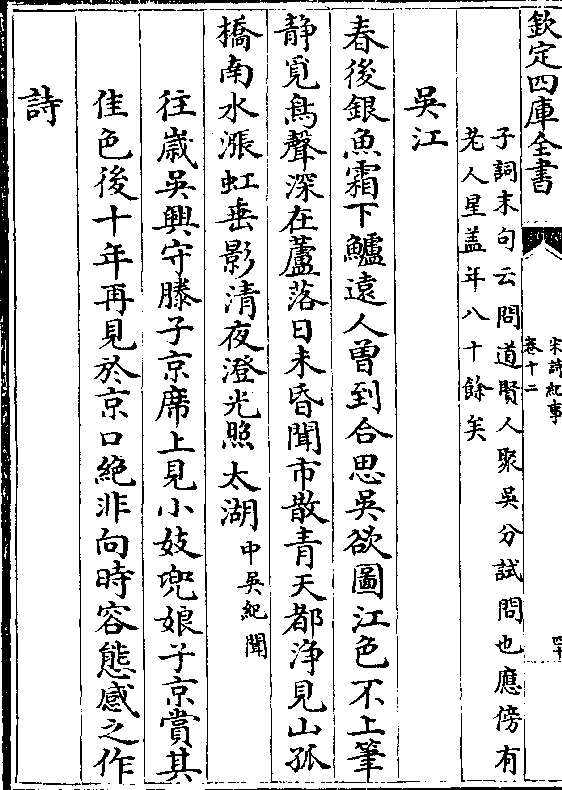 欽定四庫全書
宋詩紀事
卷十二
四十
子詞末句云問道賢人聚吳分試問也應傍有
老人星盖年八十餘矣
吳江
春後銀魚霜下鱸遠人曾到合思吳欲圖江色不上筆
静覓鳥聲深在蘆落日未昏聞市散青天都浄見山孤
橋南水漲虹垂影清夜澄光照太湖中吳紀聞
往歲吳興守滕子京席上見小妓兜娘子京賞其
佳色後十年再見於京口絶非向時容態感之作
詩